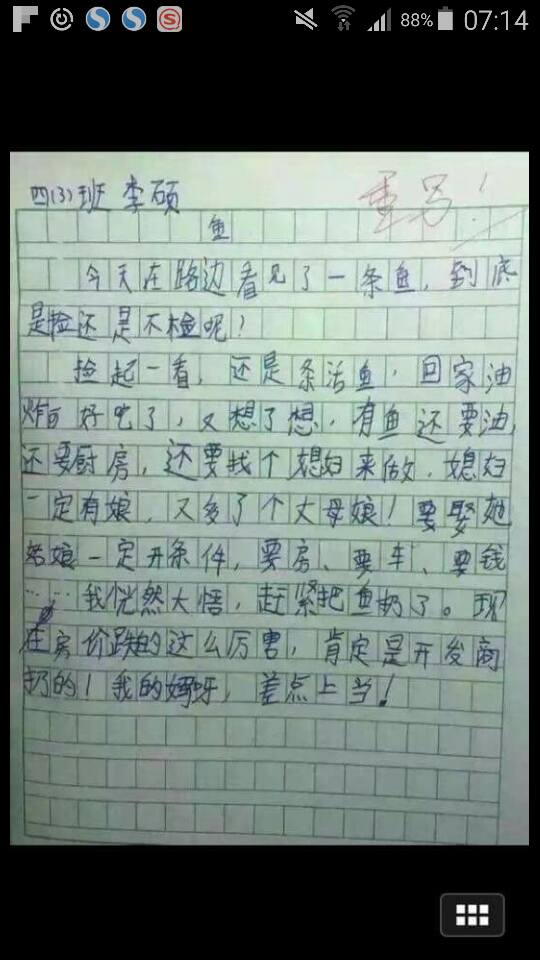 88% 07:14
四(3)班 李硕
重写!
鱼
今天在路边看见了一条鱼,到底
是捡还是不检呢?
捡起一看,还是条活鱼,回家油
炸可好吃了,又想了想,有鱼还要油,
还要厨房,还要找个媳妇来做,媳妇
一定有娘,又多了个丈母娘!要娶她
姑娘一定开条件,要房、要车、要钱
……我恍然大悟,赶紧把鱼扔了。现
在房价跌的这么厉害,肯定是开发商
扔的!我的妈呀,差点上当!